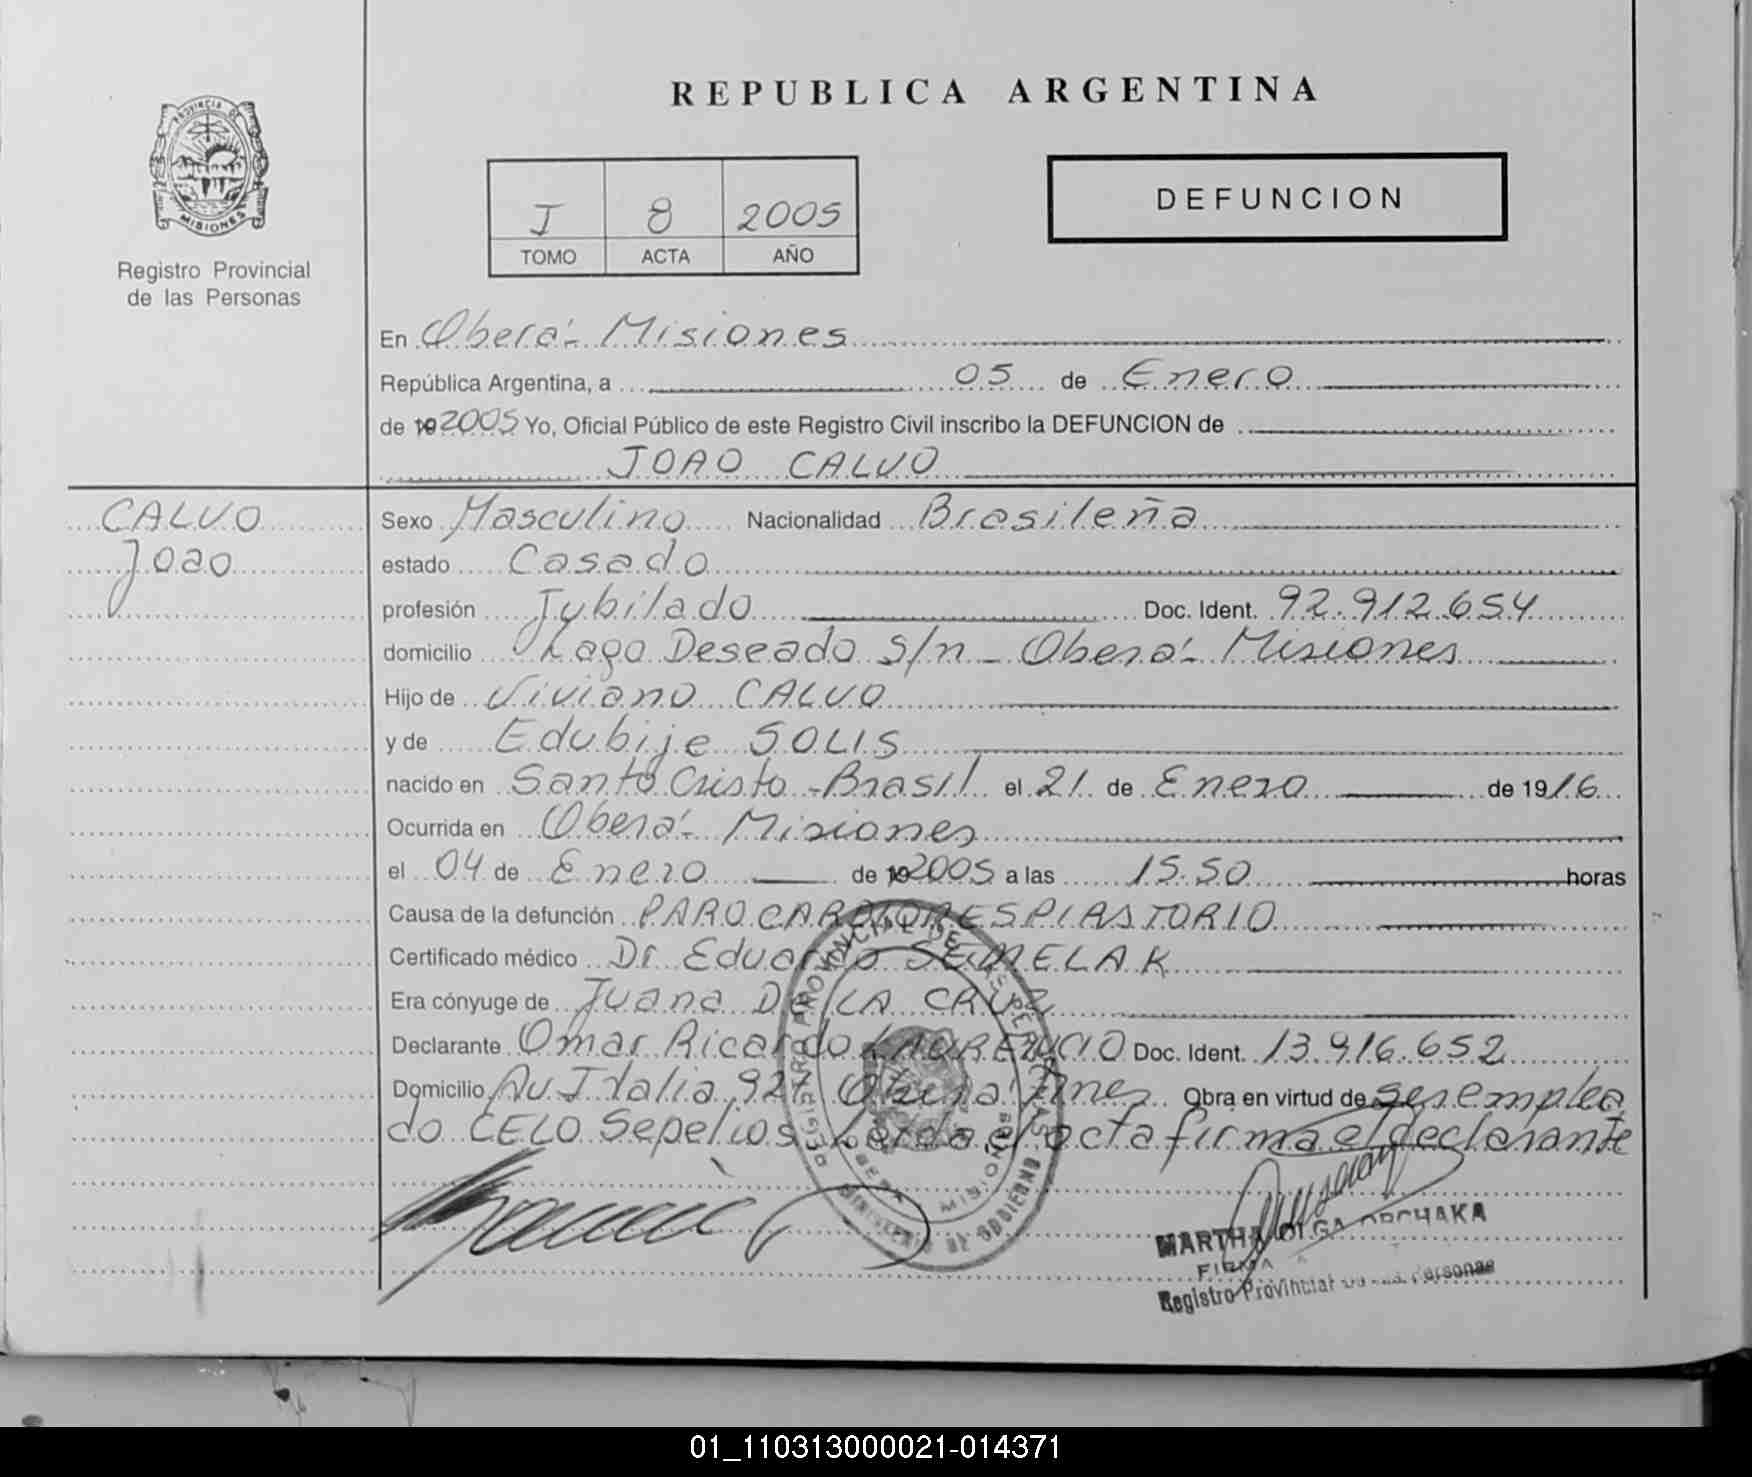 REPUBLICA ARGENTINA
PROVINCIA DE
MISIONES
Registro Provincial
de las Personas
I 8 2005
TOMO ACTA AÑO
DEFUNCION
En Oberá - Misiones
República Argentina, a 05 de Enero
de 192005 Yo, Oficial Público de este Registro Civil inscribo la DEFUNCION de
JOAO CALVO
CALVO
Joao
Sexo Masculino Nacionalidad Brasileña
estado Casado
profesión Jubilado Doc. Ident. 92.912.654
domicilio Lago Deseado s/n - Oberá - Misiones
Hijo de Viviano CALVO
y de Edubije SOLIS
nacido en Santo Cristo - Brasil el 21 de Enero de 1916
Ocurrida en Oberá - Misiones
el 04 de Enero de 192005 a las 15.50 horas
Causa de la defunción PARO CARDIORESPIASTORIO
Certificado médico Dr. Eduardo SEMELAK
Era cónyuge de Juana DE LA CRUZ
Declarante Omar Ricardo LAURENCIO Doc. Ident. 13.916.652
Domicilio Av. Italia 927 Oberá Mnes Obra en virtud de ser emplea
do CELO Sepelios. Leída el acta firma el declarante
REGISTRO PROVINCIAL DE LAS PERSONAS
MINISTERIO DE GOBIERNO
OBERA MISIONES
MARTHA OLGA ORCHAKA
FIRMA
Registro Provincial de las Personas
01_110313000021-014371